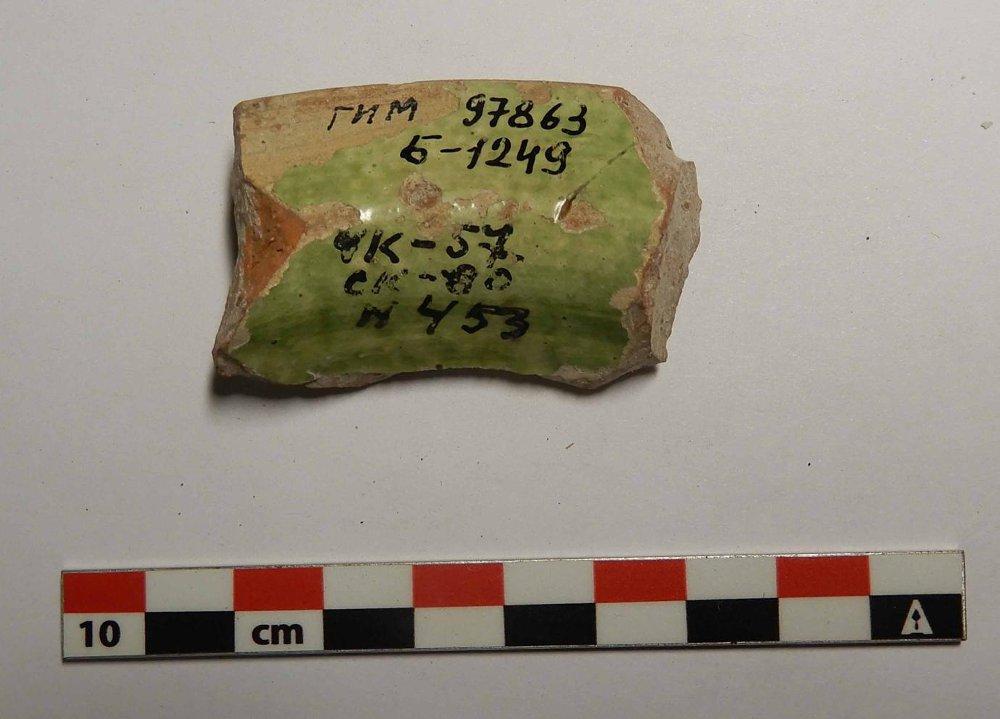 ГИМ 97863
Б-1249
ЧК-57
СК-80
N 453
10 cm
A